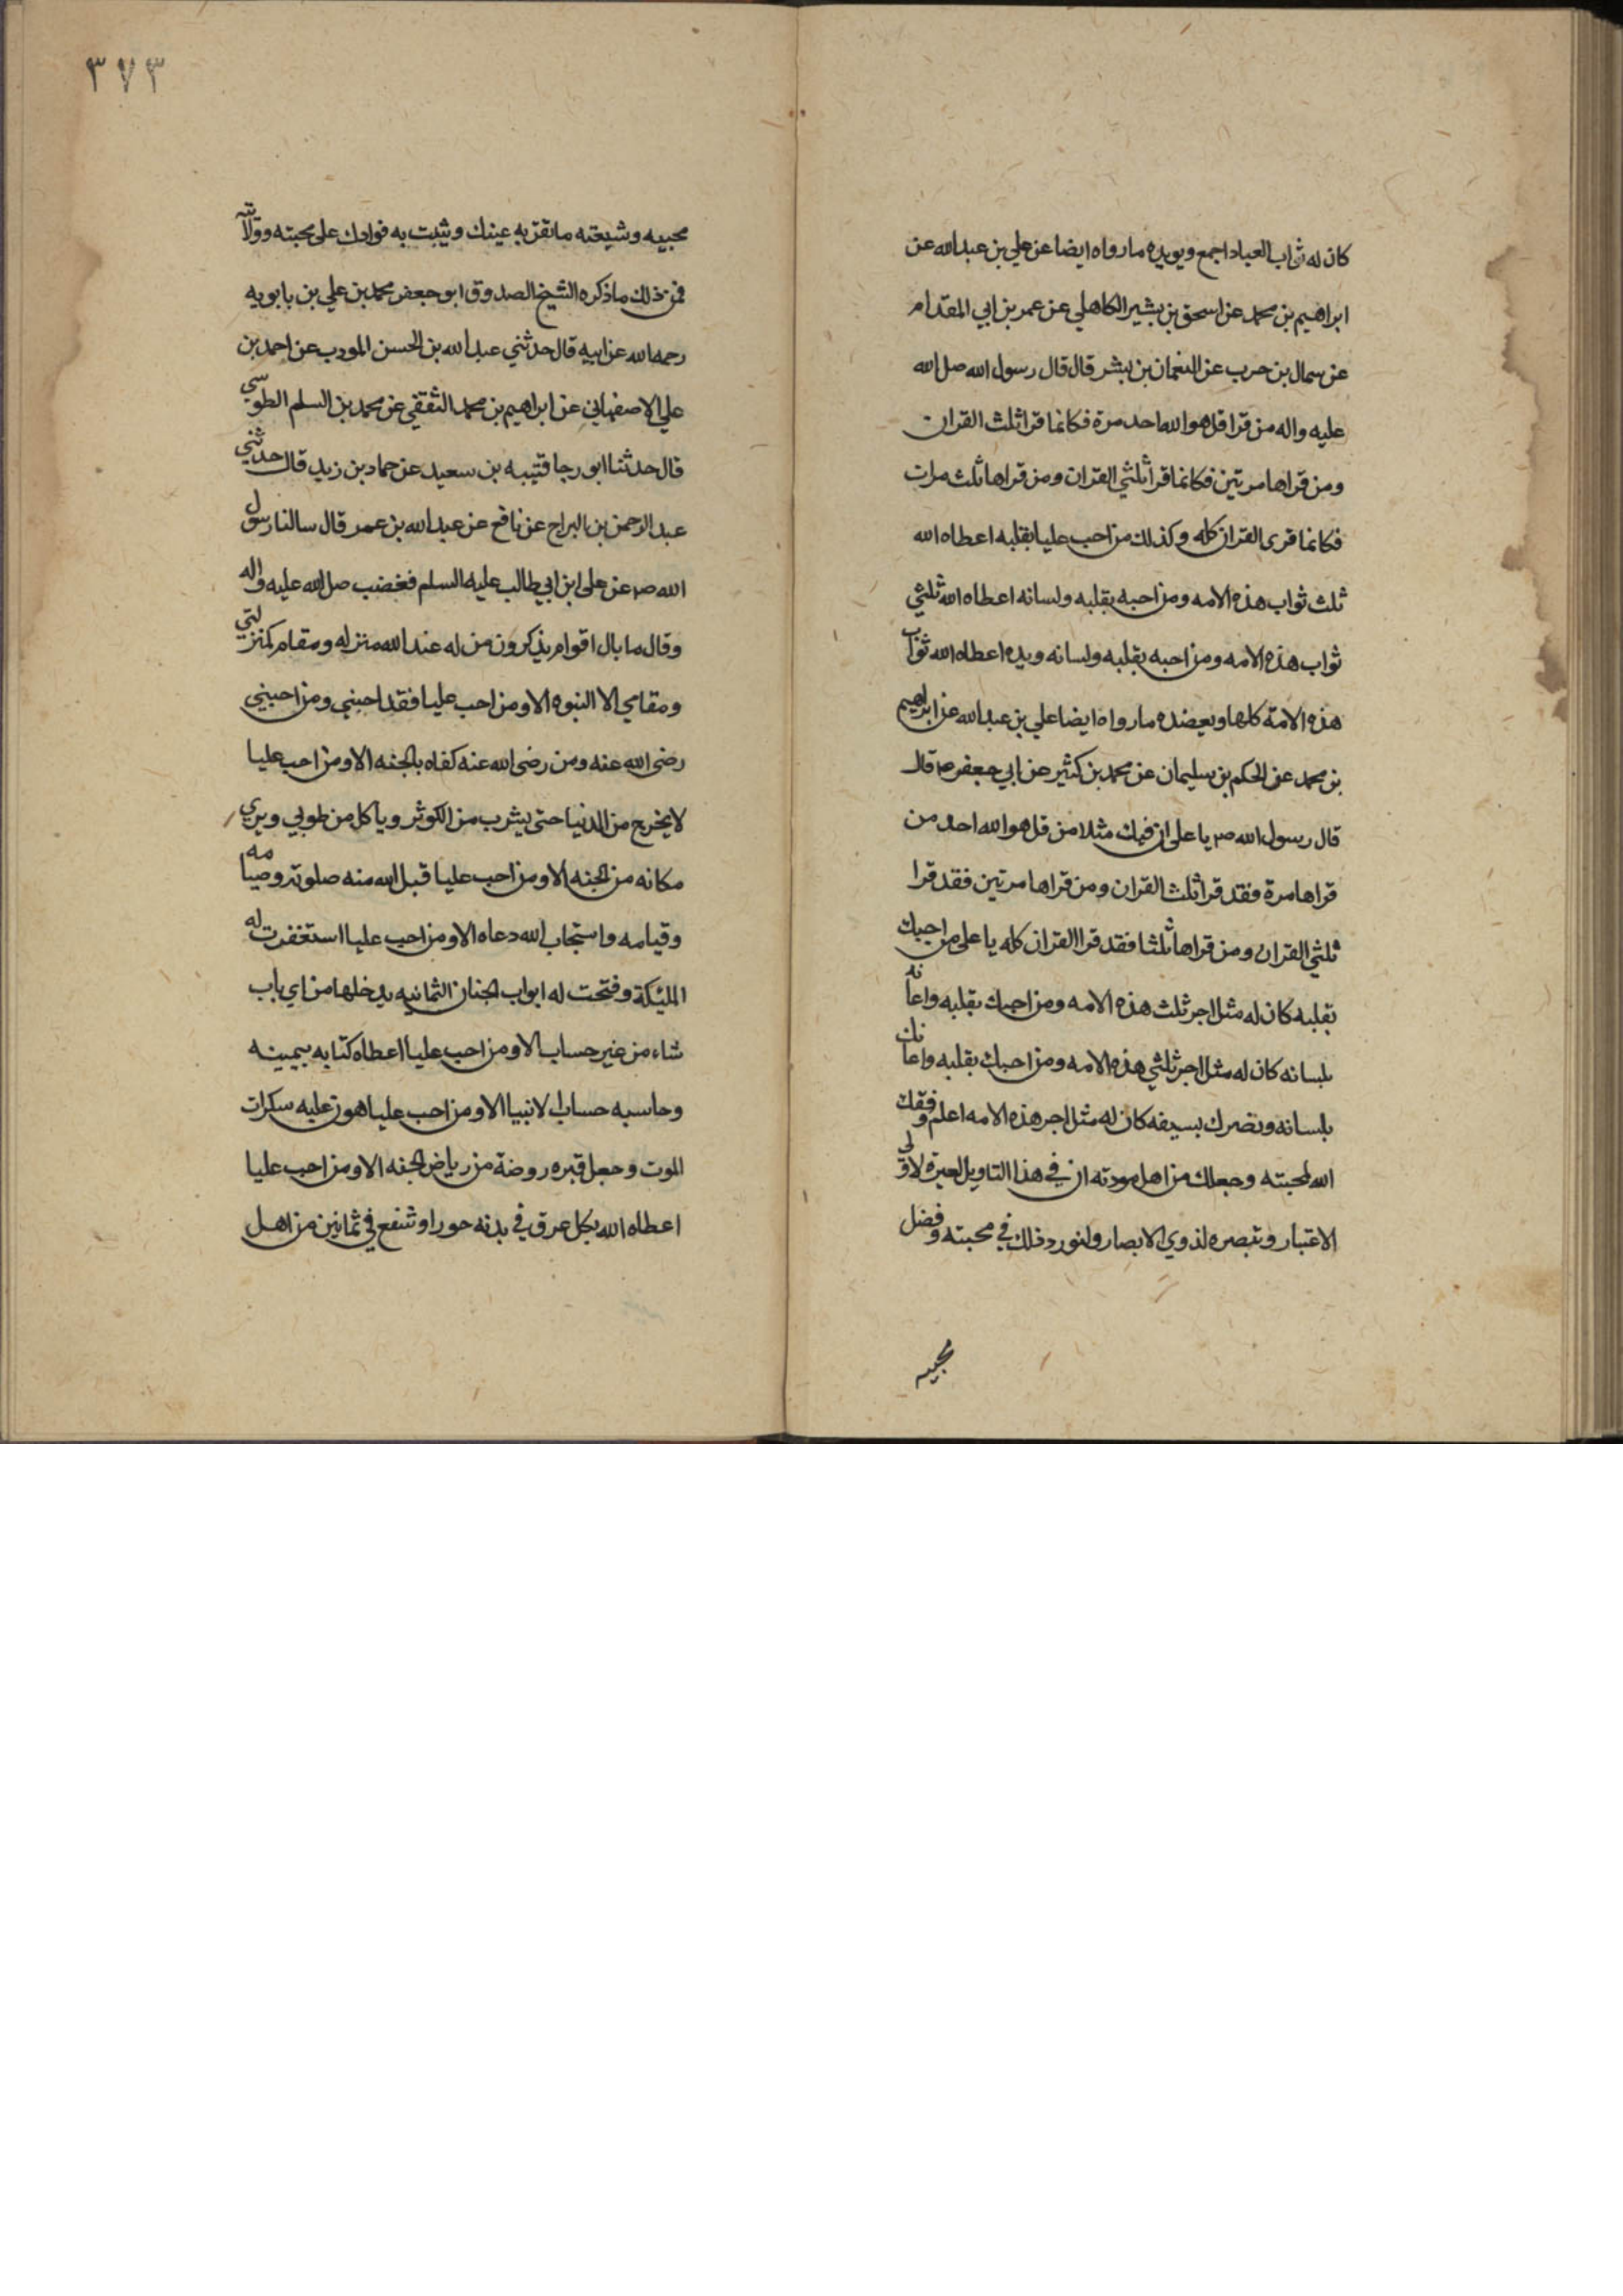 كان له ثواب العباد اجمع ويويده مارواه ايضا عن علي بن عبدالله عن
ابراهيم بن محمد عن اسحق بن بشير الكاهلي عن عمر بن ابي المقدام
عن سمال بن حرب عن النعمان بن بشر قال قال رسول الله صل الله
عليه واله من قرا قل هو الله احد مرة فكانما قرا ثلث القران
ومن قراها مرتين فكانما قرا ثلثي القران ومن قراها ثلث مرات
فكانما قرى القران كله وكذلك من احب عليا بقلبه اعطاه الله
ثلث ثواب هذه الامه ومن احبه بقلبه ولسانه اعطاه الله ثلثي
ثواب هذه الامه ومن احبه بقلبه ولسانه ويده اعطاه الله ثواب
هذه الامة كلها ويعضده مارواه ايضا علي بن عبدالله عن ابراهيم
بن محمد عن الحكم بن سليمان عن محمد بن كثير عن ابي جعفر ع قال
قال رسول الله ص يا على ان فيك مثلا من قل هو الله احد من
قراها مرة فقد قرا ثلث القران ومن قراها مرتين فقد قرا
ثلثي القران ومن قراها ثلثا فقد قرا القران كله يا على من احبك
بقلبه كان له مثل اجر ثلث هذه الامه ومن احبك بقلبه واعانه
بلسانه كان له مثل اجر ثلثي هذه الامه ومن احبك بقلبه واعانك
بلسانه ونصرك بسيفه كان له مثل اجر هذه الامه اعلم وفقك
الله لمحبته وجعلك من اهل مودته ان في هذا التاويل لعبرة لاولى
الاعتبار وتبصره لذوي الابصار ولنورد ذلك في محبته وفضل
محبيه
٣٧٣
محبيه وشيعته ما تقر به عينك ويثبت به فوادك على محبته وولايته
فمن ذلك ما ذكره الشيخ الصدوق ابو جعفر محمد بن علي بن بابويه
رحمه الله عن ابيه قال حدثني عبدالله بن الحسن المودب عن احمد بن
علي الاصفهاني عن ابراهيم بن محمد الثقفي عن محمد بن السلم الطوسي
قال حدثنا ابو رجا قتيبه بن سعيد عن حماد بن زيد قال حدثني
عبد الرحمن بن البراج عن نافع عن عبدالله بن عمر قال سالنا رسول
الله ص عن على ابن ابي طالب عليه السلم فغضب صل الله عليه واله
وقال ما بال اقوام يذكرون من له عند الله منزله ومقام كمنزلتي
ومقامي الا النبوه الا ومن احب عليا فقد احبني ومن احبني
رضى الله عنه ومن رضى الله عنه كفاه بالجنه الا ومن احب عليا
لا يخرج من الدنيا حتى يشرب من الكوثر وياكل من طوبي ويري
مكانه من الجنه الا ومن احب عليا قبل الله منه صلوته وصيامه
وقيامه واستجاب الله دعاه الا ومن احب عليا استغفرت له
المليكة وفتحت له ابواب الجنان الثمانيه يدخلها من اي باب
شاء من غير حساب الا ومن احب عليا اعطاه كتابه بيمينه
وحاسبه حساب الانبيا الا ومن احب عليا هون عليه سكرات
الموت وجعل قبره روضة من رياض الجنه الا ومن احب عليا
اعطاه الله بكل عرق في بدنه حورا وشفع في ثمانين من اهل